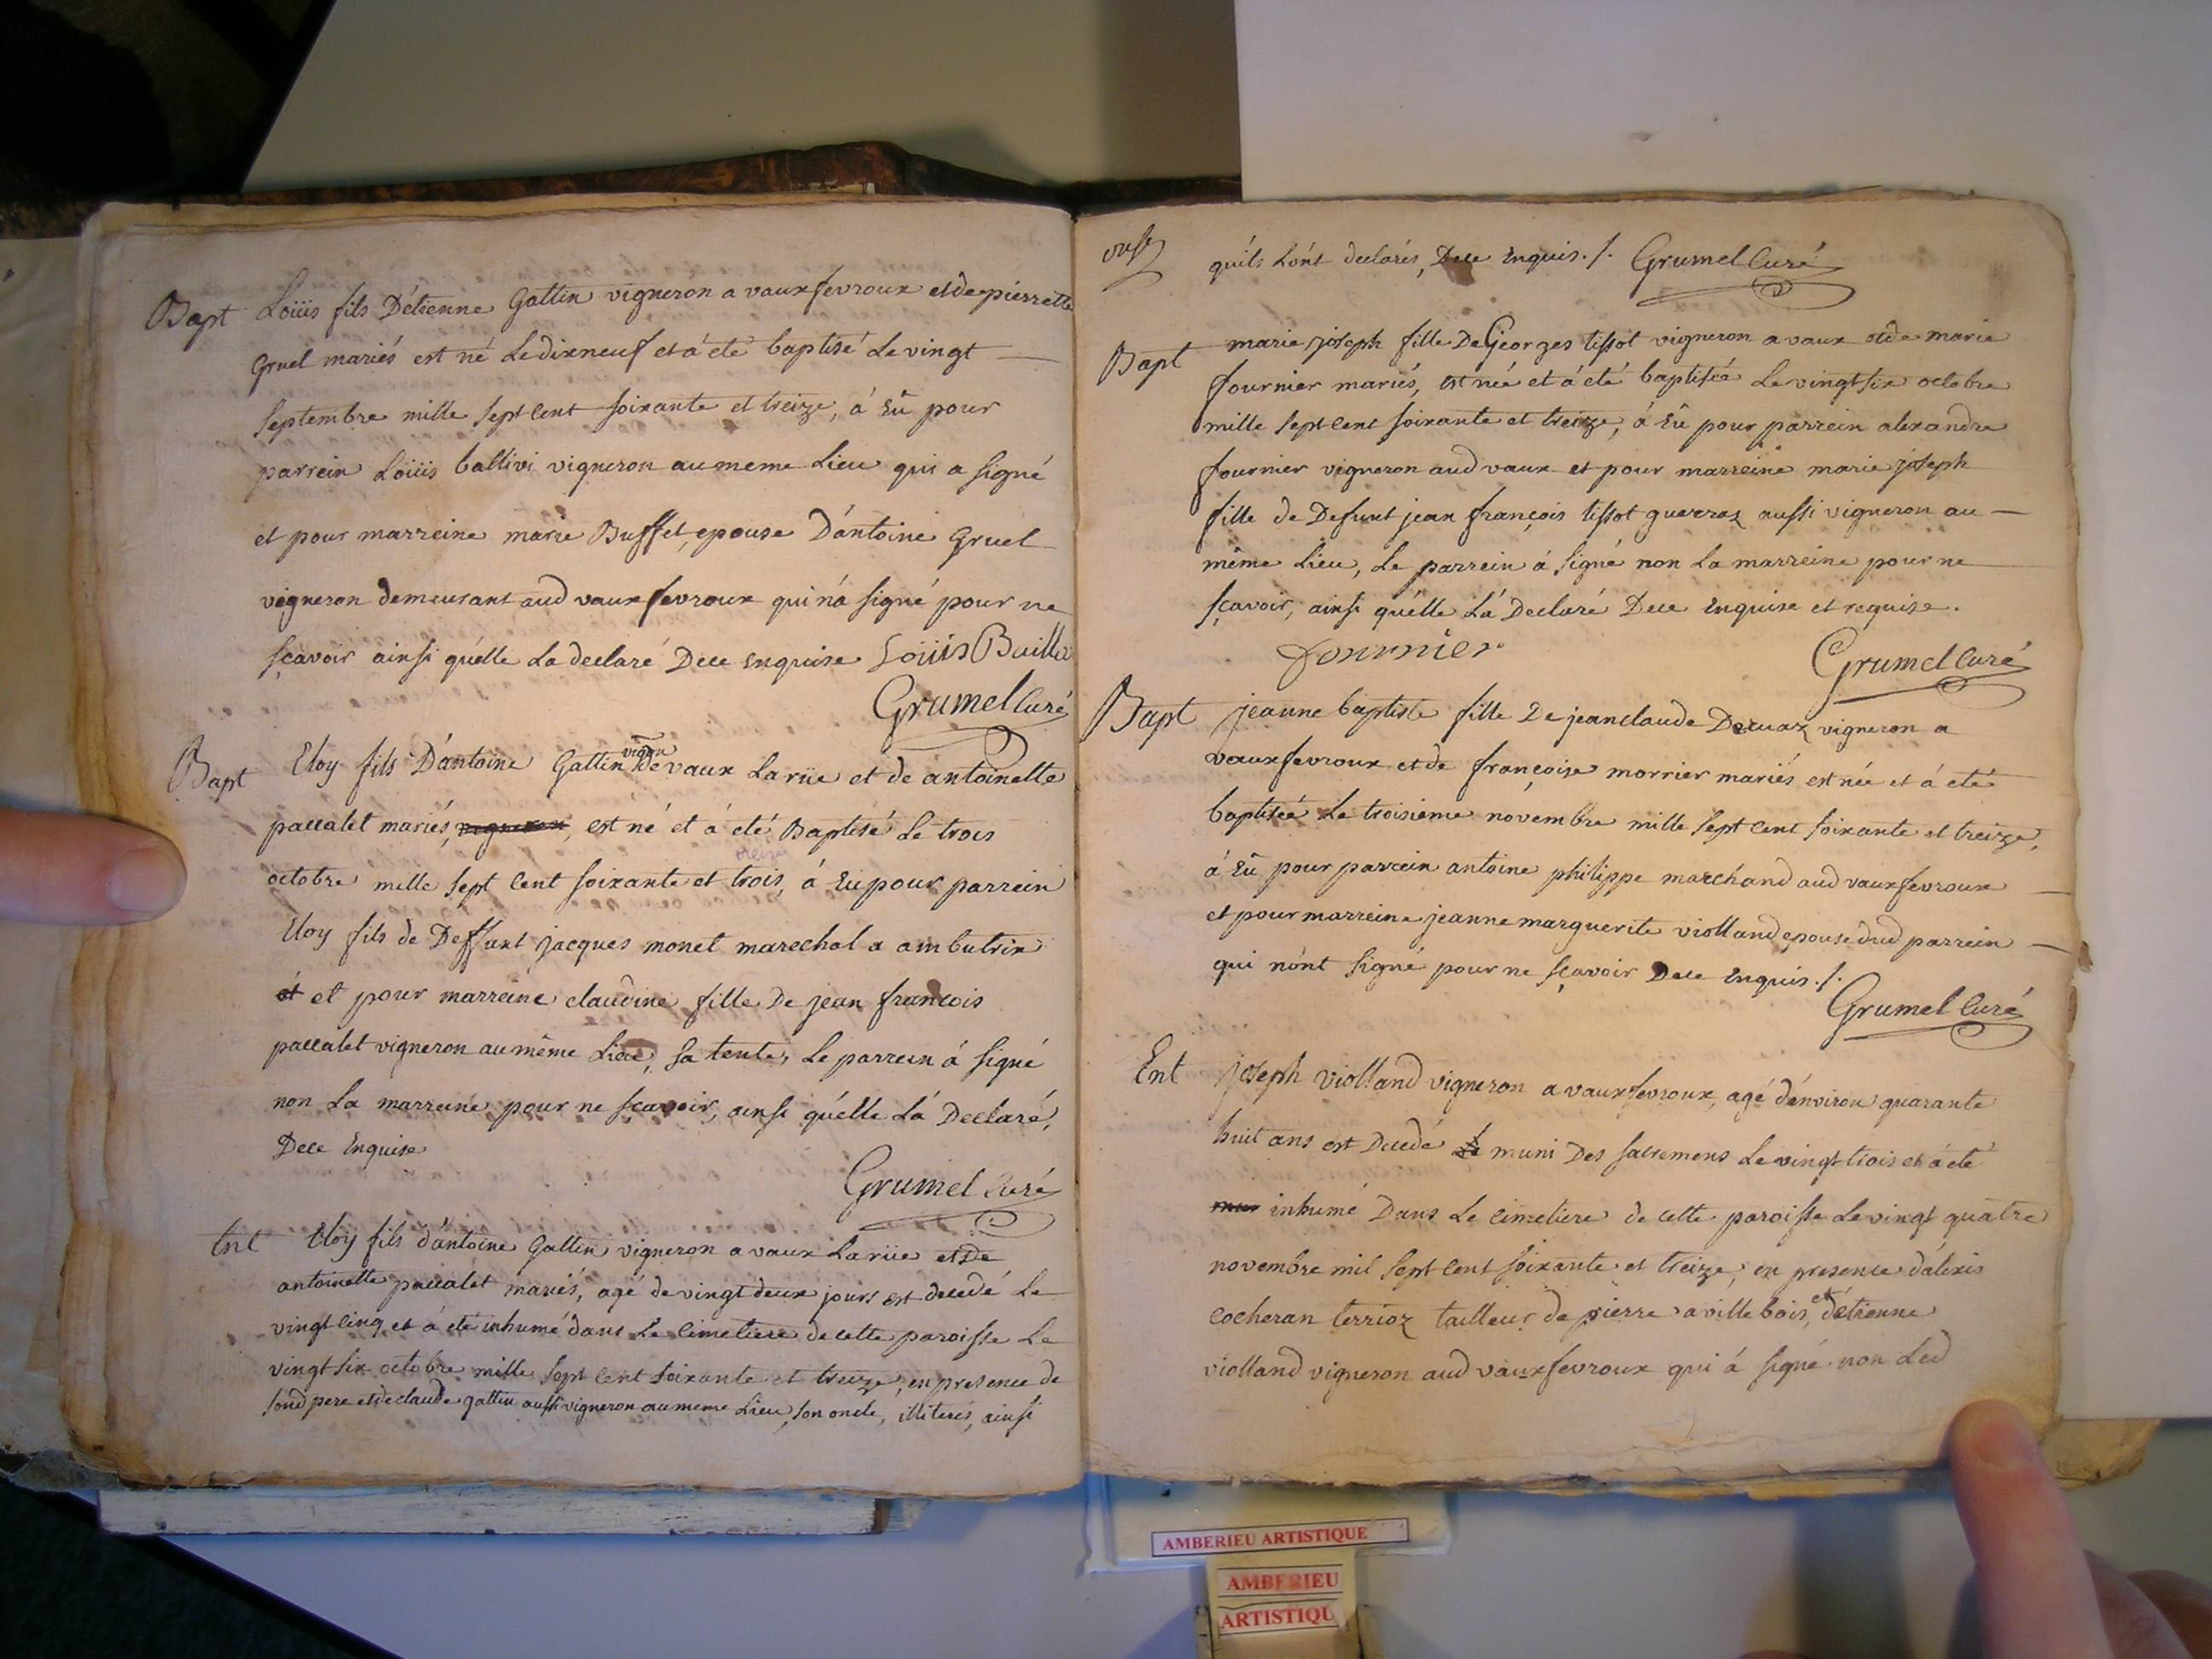 Bapt Loüis fils D'étienne Gattin vigneron a vaux fevroux et de pierrette
Gruel mariés est né Le dixneuf et á eté baptisé Le vingt
Septembre mille Sept Cent Soixante et treize, á Eû pour
parrein Loüis ballivi vigneron au meme Lieu qui a Signé
et pour marreine marie Buffet, epouse D'antoine Gruel
vigneron demeurant aud vaux fevroux qui n'á Signé pour ne
sçavoir ainsi qu'elle La declaré Dece enquise Loüis Bailli
Grumel Curé
Bapt Eloy fils D'antoine Gattin vigon De vaux La rüe et de antoinette
paccalet mariés, vigneron, est né et á eté Baptisé Le trois
treize
octobre mille Sept Cent Soixante et trois, á Eu pour parrein
Eloy fils de Deffunt Jacques monet marechal a ambutrix
et et pour marreine claudine fille De jean francois
paccalet vigneron au même Lieu, Sa tente, Le parrein á Signé
non La marreine pour ne sçavoir, ainsi qu'elle L'á Declaré,
Dece Enquise
Grumel Curé
Ent Eloy fils d'antoine Gattin vigneron a vaux La rüe et De
antoinette paccalet mariés, agé de vingt deux jours est decedé Le
vingt Cinq et á eté inhumé dans Le Cimetiere de cette paroisse Le
vingt Six octobre mille Sept Cent Soixante et treize, en presence de
Sond pere et de claude gattin aussi vigneron au meme Lieu, Son oncle, illiterés, ainsi
onze
qu'ils L'ónt declarés, Dece Enquis. /. Grumel Curé
Bapt marie joseph fille De Georges tissot vigneron a vaux et de marie
fournier mariés, est née et á eté baptiséé Le vingt Six octobre
mille Sept Cent Soixante et treize, á Eû pour parrein alexandre
fournier vigneron aud vaux et pour marreine marie joseph
fille de Defunt jean françois tissot guerraz aussi vigneron au
même Lieu, Le parrein á Signé non La marreine pour ne
sçavoir, ainsi qu'elle L'á Declaré Dece Enquise et requise.
fournier
Grumel Curé
Bapt jeanne baptiste fille De jean claude Deruaz vigneron a
vaux fevroux et de françoise morrier mariés est née et á eté
baptiséé Le troisieme novembre mille Sept Cent Soixante et treize,
á Eû pour parrein antoine philippe marchand aud vaux fevroux
et pour marreine jeanne marguerite violland epouse dud parrein
qui n'ónt Signé pour ne sçavoir Dece Enquis. /.
Grumel Curé
Ent joseph violland vigneron a vaux fevroux, agé d'énviron quarante
huit ans est Decedé Le muni Des Sacremens Le vingt trois et á eté
mun inhumé Dans Le Cimetiere de cette paroisse Le vingt quatre
novembre mil Sept Cent Soixante et treize, en presence d'alexis
cocheran terrioz tailleur de pierre a ville bois, et d'étienne
violland vigneron aud vaux fevroux qui á Signé non Led
AMBERIEU ARTISTIQUE
AMBERIEU
ARTISTIQU